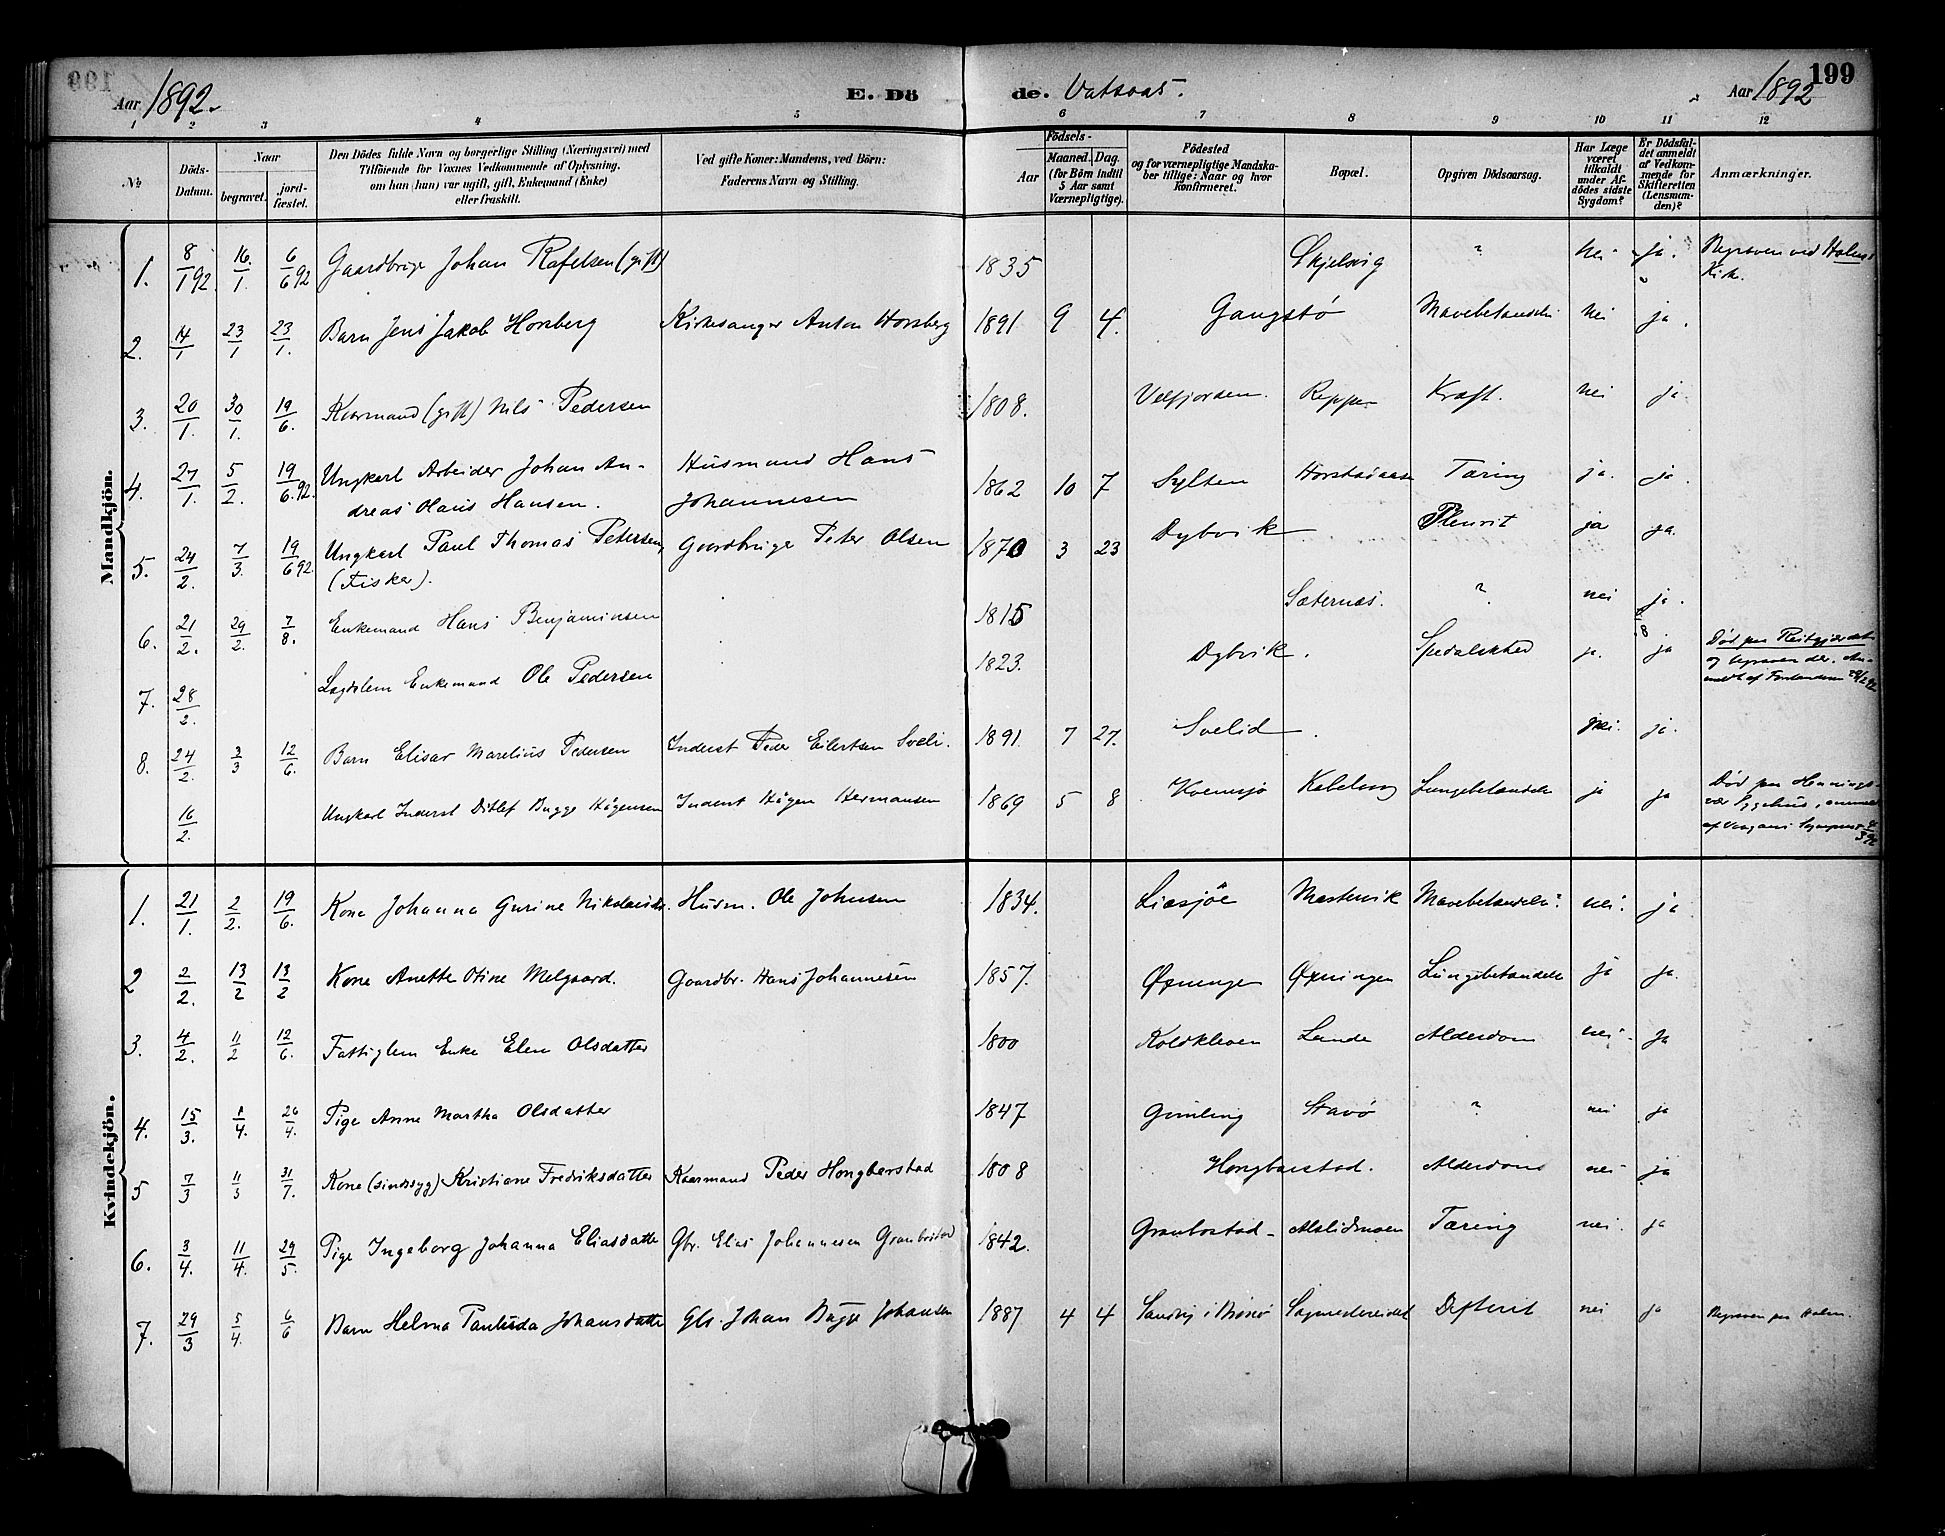 Aar 1892. E. Dö de. Vatsaas. Aar 1892 199
1 2 3 4 5 6 7 8 9 10 11 12
№ Döds-Datum. Naar begravet. jord-fæstet. Den Dödes fulde Navn og borgerlige Stilling (Næringsvei) med Tilföiende for Voxnes Vedkommende af Oplysning, om han (hun) var ugift, gift, Enkemand (Enke) eller fraskilt. Ved gifte Koner: Mandens, ved Börn: Faderens Navn og Stilling. Födsels- Aar Maaned. Dag. (for Börn indtil 5 Aar samt Værnepligtige). Födested og for værnepligtige Mandska-ber tillige: Naar og hvor konfirmeret. Bopæl. Opgiven Dödsaarsag. Har Læge været tilkaldt under Af-dödes sidste Sygdom? Er Dödsfal-det anmeldt af Vedkom-mende for Skifteretten (Lensman-den)? Anmærkninger.
Mandkjön.
1. 8/1 92 16/1. 6/6 92 Gaardbruge Johan Rafelsen (gift) 1835 Skjelsvig ? nei ja. Begraven ved Holms Kirk.
2. 14/1 23/1 23/1. Barn Jens Jakob Horsberg Kirkesanger Anton Horsberg 1891 9 4. Gangstø Mavebetændelse nei ja.
3. 20/1. 30/1. 19/6. Kaarmand (gift) Nils Pedersen 1808. Velfjorden. Reppen Kræft. nei ja.
4. 27/1. 5/2. 19/6. 92. Ungkarl Arbeider Johan An-
dreas Olaus Hansen. Husmand Hans Johannesen 1862 10 7 Sylten Horstadaasen Tæring ja. ja.
5. 24/2. 7/3. 19/6 92 Ungkarl Paul Thomas Petersen,
(Fisker). Gaardbruge Peter Olsen 1870 3 23 Dybvik Plevrit ja ja.
6. 21/2. 29/2. 7/8. Enkemand Hans Benjaminsen 1815 Sæternæs. ? nei ja.
7. 28/2. Lægdslem Enkemand Ole Pedersen 1823. Dybvik. Spedalskhed ja. ja Død paa Reitgjærdet og begraven der. An-meldt af Forstanderen 29/2 92
8. 24/2. 3/3 12/6. Barn Elisar Marelius Pedersen Inderst Peder Eilertsen Sveli. 1891. 7 27. Svelid. nei. ja.
16/2. Ungkarl Inderst Ditlef Bugge Hågensen Inderst Hågen Hermansen 1869 5 8 Kvennsjø Lungebetændelse ja ja Død paa Hennings-vær Sygehus, anmeldt af Vaagans Sognepræst 4/3 92
Kvindekjön.
1. 21/1. 2/2. 19/6. Kone Johanna Gurine Nikolaisdr. Husm. Ole Johnsen 1834. Liasjøe Mastervik Mavebetændelse. nei. ja
2 2/2. 13/2 13/2 Kone Anette Otine Melgaard. Gaardbr. Hans Johannesen 1857. Øxningen Øxningen Lungebetændelse ja ja.
3. 4/2. 11/2 12/6. Fattiglem Enke Elen Olsdatter 1800 Koldkleven Lande Alderdom nei. ja
4. 15/3. 1/4. 26/4. Pige Anne Martha Olsdatter 1847 Gimling Stavø ? nei ja
5 7/3 11/3 31/7. Kone (sindssyg) Kristiane Fredriksdatter Kaarmand Peder Hongbarstad 1808 Hongbarstad. Alderdoms nei. ja
6. 3/4. 11/4. 29/5. Pige Ingeborg Johanna Eliasdatter Gbr. Elias Johannesen Granbostad 1842. Granbostad - Alslidmoen Tæring nei. ja
7. 29/3 5/4. 6/6 Barn Helma Paulusda Johansdatter Gbr. Johan Bugge Johansen 1887 4 4 Sandvig i Brønø Sagmestereidet Difterit nei ja Begraven paa Holm.